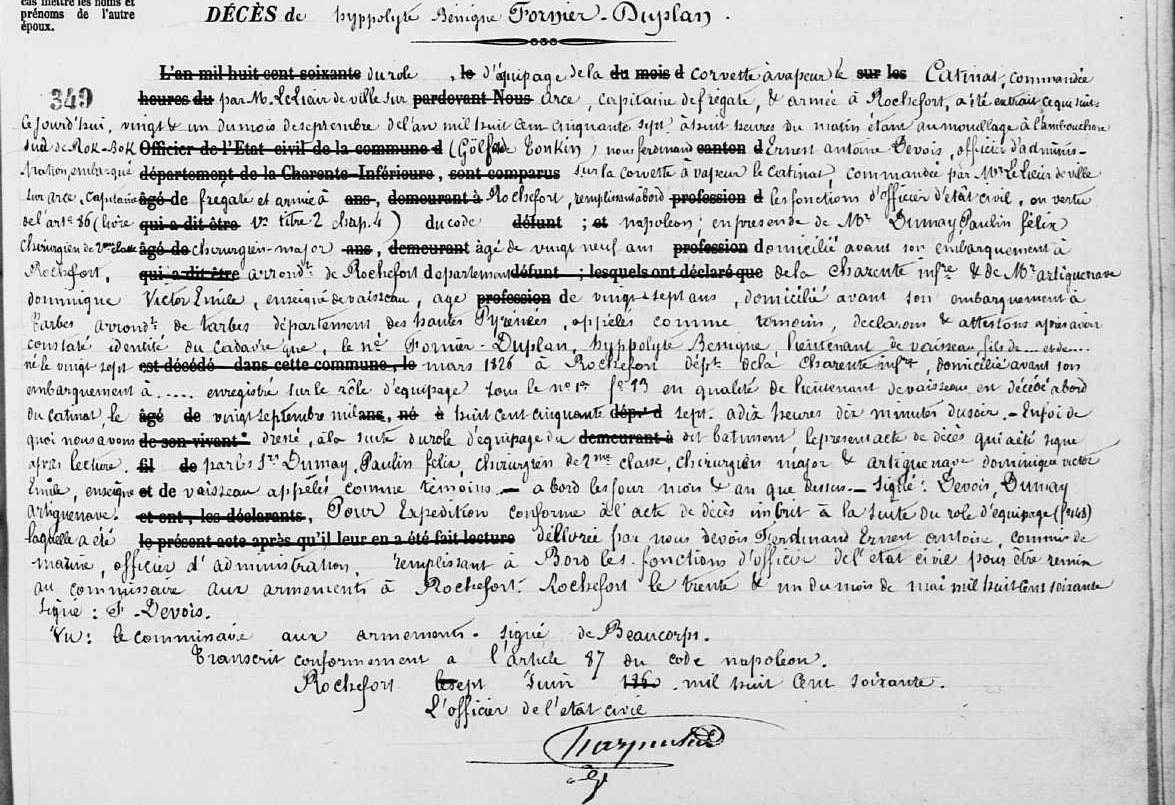 cas mettre les noms et
prénoms de l'autre
époux.
DÉCÈS de hyppolyte Bénigne Fornier-Duplan.
349
L'an mil huit cent soixante du role , le d'équipage de la du mois d corvette à vapeur le sur les Catinat, commandée
heures du par M. Lelieur de ville sur pardevant Nous arce, capitaine de frégate, & armée à Rochefort, a été extrait ce qui suit:
Ce jourd'hui, vingt & un du mois de septembre de l'an mil huit cent cinquante sept à huit heures du matin étant au mouillage à l'embouchure
Sud de Rok-Bok Officier de l'Etat civil de la commune d (Golfe de Tonkin) nous ferdinand canton d Ernest antoine Devois, officier d'adminis-
tration, embarqué département de la Charente-Inférieure, sont comparus sur la corvette à vapeur le Catinat, commandée par Mr. Le lieur de ville
sur arce, Capitaine âgé de frégate et armée à ans, demeurant à Rochefort, remplissant abord profession d les fonctions d'officier d'état civil, en vertu
de l'art. 86 (livre qui a dit être 1er titre 2 chap. 4) du code défunt ; et napoleon; en presence de Mr Dumay Paulin félix
chirurgien de 2me classe âgé de chirurgien-major ans, demeurant âgé de vingt neuf ans profession domicilié avant son embarquement à
Rochefort, qui a dit être arrondt. de Rochefort departement défunt ; lesquels ont déclaré que de la Charente infre & de Mr artiguenave
dominique Victor Emile, enseigne de vaisseau, age profession de vingt sept ans, domicilié avant son embarquement à
Tarbes arrondt. de tarbes département des hautes Pyrénées, appelés comme temoins, declarons & attestons après avoir
constaté identité du cadavre que, le né Fornier-Duplan, hyppolyte Benigne, lieutenant de vaisseau fils de ... et de ....
né le vingt sept est décédé dans cette commune, le mars 1826 à Rochefort dépt. de la Charente infre, domicilié avant son
embarquement à ..... enregistré sur le rôle d'équipage sous le no 1er fo 13 en qualité de lieutenant de vaisseau est décédé abord
du Catinat, le âgé de vingt septembre mil ans, né à huit cent cinquante dép. d sept. a dix heures dix minutes du soir. - Enfoi de
quoi nous avons de son vivant dressé, à la suite du role d'équipage du demeurant à dit batiment le present acte de décès qui a été signé
après lecture. fil de par les Srs Dumay, Paulin félix, chirurgien de 2me classe, chirurgien major & artiguenave dominique victor
Emile, enseigne et de vaisseau appelés comme témoins. - a bord les jour mois & an que dessus. - Signé: Devois, Dumay
artiguenave. et ont, les déclarants, Pour Expedition conforme à l'acte de décès inscrit à la suite du role d'équipage (fo 143)
laquelle a été le présent acte après qu'il leur en a été fait lecture délivrée par nous devois Ferdinand Ernest antoine, commis de
marine, officier d'administration, remplissant à Bord les fonctions d'officier de l'etat civil pour être remise
au commissaire aux armements à Rochefort. Rochefort le trente & un du mois de mai mil huit cent soixante
Signé: F. Devois.
Vu: le commissaire aux armements. Signé de Beaucorps.
Transcrit conformement a l'article 87 du code napoleon.
Rochefort le sept Juin 186 mil huit cent soixante.
L'officier de l'etat civil